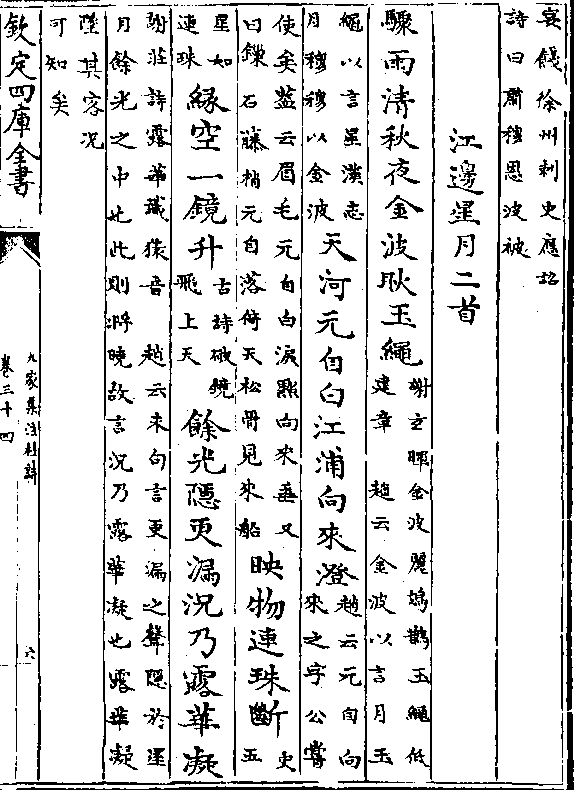 宴餞徐州刺史應詔
詩曰肅穆恩波被
江邊星月二首
驟雨清秋夜金波耿玉繩
謝玄暉金波麗鳷鵲玉繩低
建章 趙云金波以言月玉
繩以言星漢志
月穆穆以金波
天河元自白江浦向來澄
趙云元自向
來之字公嘗
使矣蓋云眉毛元自白淚點向來垂又
曰鑠石藤梢元自落倚天松骨見來船
映物連珠斷
史
五
星如
連珠
緣空一鏡升
古詩破鏡
飛上天
餘光隱更漏況乃露華凝
謝莊詩露華識猿音 趙云末句言更漏之聲隱於星
月餘光之中也此則將曉故言況乃露華凝也露華凝
墜其客况
可知矣
欽定四庫全書
九家集注杜詩
卷三十四
六